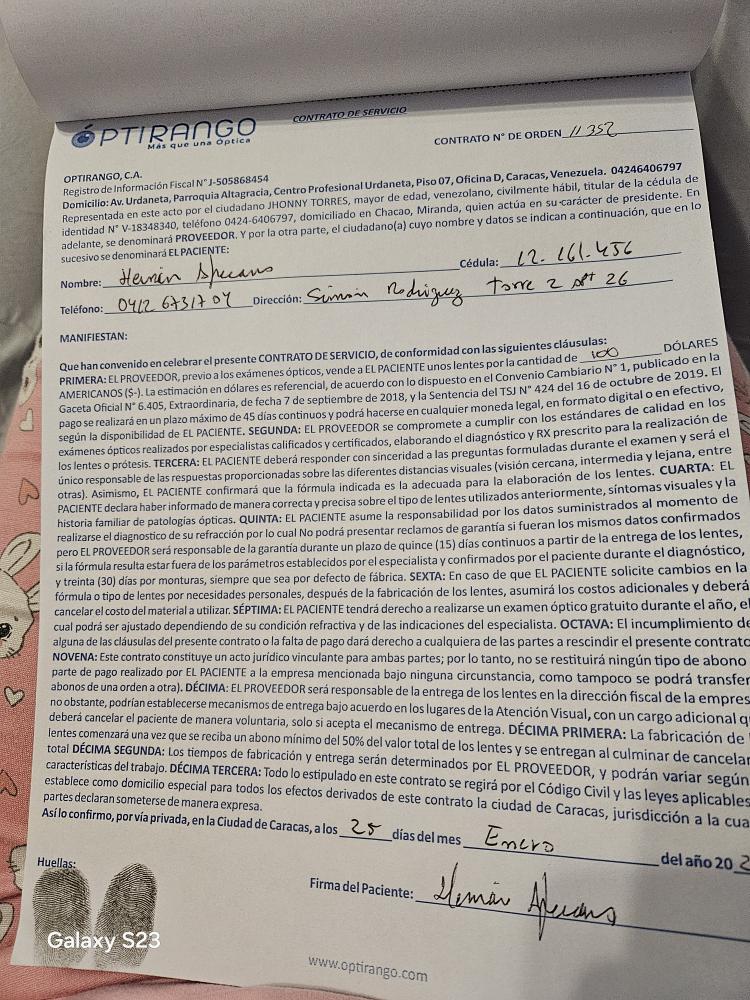 CONTRATO DE SERVICIO
OPTIRANGO
Más que una Óptica
CONTRATO N° DE ORDEN 11352
OPTIRANGO, C.A.
Registro de Información Fiscal N° J-505868454
Domicilio: Av. Urdaneta, Parroquia Altagracia, Centro Profesional Urdaneta, Piso 07, Oficina D, Caracas, Venezuela. 04246406797
Representada en este acto por el ciudadano JHONNY TORRES, mayor de edad, venezolano, civilmente hábil, titular de la cédula de
identidad N° V-18348340, teléfono 0424-6406797, domiciliado en Chacao, Miranda, quien actúa en su carácter de presidente. En
adelante, se denominará PROVEEDOR. Y por la otra parte, el ciudadano(a) cuyo nombre y datos se indican a continuación, que en lo
sucesivo se denominará EL PACIENTE:
Nombre: Hernán Cédula: 12.161.456
Teléfono: 0412 6731704 Dirección: Simón Rodriguez torre 2 apt 26
MANIFIESTAN:
Que han convenido en celebrar el presente CONTRATO DE SERVICIO, de conformidad con las siguientes cláusulas:
PRIMERA: EL PROVEEDOR, previo a los exámenes ópticos, vende a EL PACIENTE unos lentes por la cantidad de 100 DÓLARES
AMERICANOS ($-). La estimación en dólares es referencial, de acuerdo con lo dispuesto en el Convenio Cambiario N° 1, publicado en la
Gaceta Oficial N° 6.405, Extraordinaria, de fecha 7 de septiembre de 2018, y la Sentencia del TSJ N° 424 del 16 de octubre de 2019. El
pago se realizará en un plazo máximo de 45 días continuos y podrá hacerse en cualquier moneda legal, en formato digital o en efectivo,
según la disponibilidad de EL PACIENTE. SEGUNDA: EL PROVEEDOR se compromete a cumplir con los estándares de calidad en los
exámenes ópticos realizados por especialistas calificados y certificados, elaborando el diagnóstico y RX prescrito para la realización de
los lentes o prótesis. TERCERA: EL PACIENTE deberá responder con sinceridad a las preguntas formuladas durante el examen y será el
único responsable de las respuestas proporcionadas sobre las diferentes distancias visuales (visión cercana, intermedia y lejana, entre
otras). Asimismo, EL PACIENTE confirmará que la fórmula indicada es la adecuada para la elaboración de los lentes. CUARTA: EL
PACIENTE declara haber informado de manera correcta y precisa sobre el tipo de lentes utilizados anteriormente, síntomas visuales y la
historia familiar de patologías ópticas. QUINTA: EL PACIENTE asume la responsabilidad por los datos suministrados al momento de
realizarse el diagnostico de su refracción por lo cual No podrá presentar reclamos de garantía si fueran los mismos datos confirmados
pero EL PROVEEDOR será responsable de la garantía durante un plazo de quince (15) días continuos a partir de la entrega de los lentes,
si la fórmula resulta estar fuera de los parámetros establecidos por el especialista y confirmados por el paciente durante el diagnóstico,
y treinta (30) días por monturas, siempre que sea por defecto de fábrica. SEXTA: En caso de que EL PACIENTE solicite cambios en la
fórmula o tipo de lentes por necesidades personales, después de la fabricación de los lentes, asumirá los costos adicionales y deberá
cancelar el costo del material a utilizar. SÉPTIMA: EL PACIENTE tendrá derecho a realizarse un examen óptico gratuito durante el año, el
cual podrá ser ajustado dependiendo de su condición refractiva y de las indicaciones del especialista. OCTAVA: El incumplimiento de
alguna de las cláusulas del presente contrato o la falta de pago dará derecho a cualquiera de las partes a rescindir el presente contrato
NOVENA: Este contrato constituye un acto jurídico vinculante para ambas partes; por lo tanto, no se restituirá ningún tipo de abono
parte de pago realizado por EL PACIENTE a la empresa mencionada bajo ninguna circunstancia, como tampoco se podrá transfer
abonos de una orden a otra). DÉCIMA: EL PROVEEDOR será responsable de la entrega de los lentes en la dirección fiscal de la empres
no obstante, podrían establecerse mecanismos de entrega bajo acuerdo en los lugares de la Atención Visual, con un cargo adicional q
deberá cancelar el paciente de manera voluntaria, solo si acepta el mecanismo de entrega. DÉCIMA PRIMERA: La fabricación de
lentes comenzará una vez que se reciba un abono mínimo del 50% del valor total de los lentes y se entregan al culminar de cancelar
total DÉCIMA SEGUNDA: Los tiempos de fabricación y entrega serán determinados por EL PROVEEDOR, y podrán variar según
características del trabajo. DÉCIMA TERCERA: Todo lo estipulado en este contrato se regirá por el Código Civil y las leyes aplicables
establece como domicilio especial para todos los efectos derivados de este contrato la ciudad de Caracas, jurisdicción a la cua
partes declaran someterse de manera expresa.
Así lo confirmo, por vía privada, en la Ciudad de Caracas, a los 25 días del mes Enero del año 202
Huellas:
Firma del Paciente: Hernán
Galaxy S23
www.optirango.com